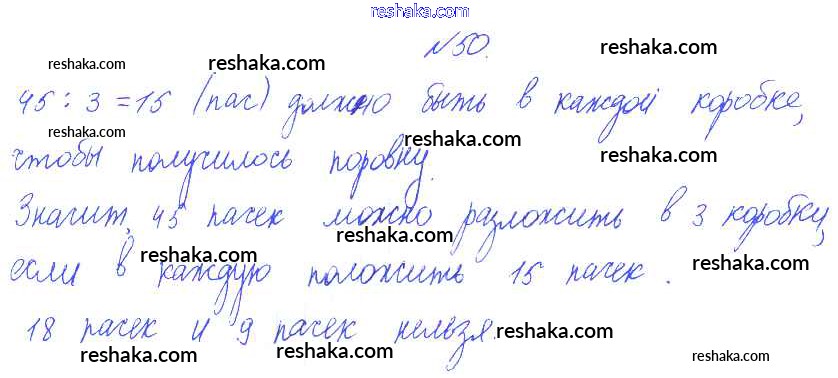 reshaka.com
№50.
reshaka.com reshaka.com reshaka.com
45 : 3 = 15 (пас) должно быть в каждой коробке,
reshaka.com reshaka.com reshaka.com
чтобы получилось поровну.
Значит, 45 пачек можно разложить в 3 коробки,
reshaka.com reshaka.com reshaka.com
если в каждую положить 15 пачек.
18 пачек и 9 пачек нельзя.
reshaka.com reshaka.com reshaka.com reshaka.com